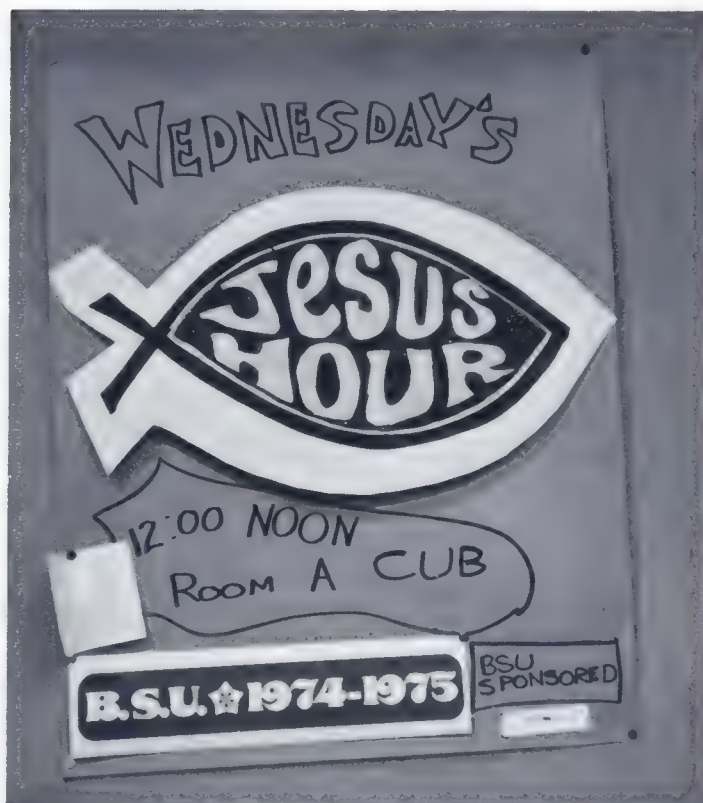 WEDNESDAY'S
JESUS
HOUR
12:00 NOON
ROOM A CUB
B.S.U. 1974-1975
BSU
SPONSORED